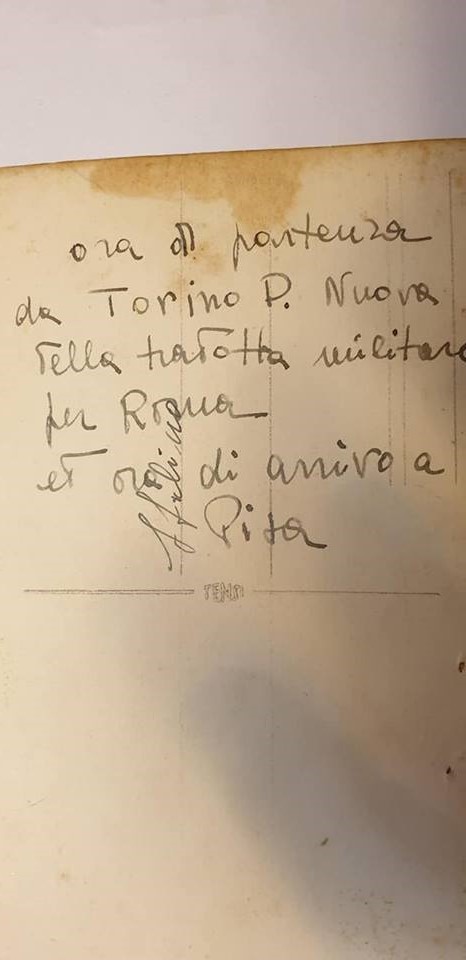 ora di partenza
da Torino P. Nuova
della tradotta militare
per Roma
et ora di arrivo a
Pisa